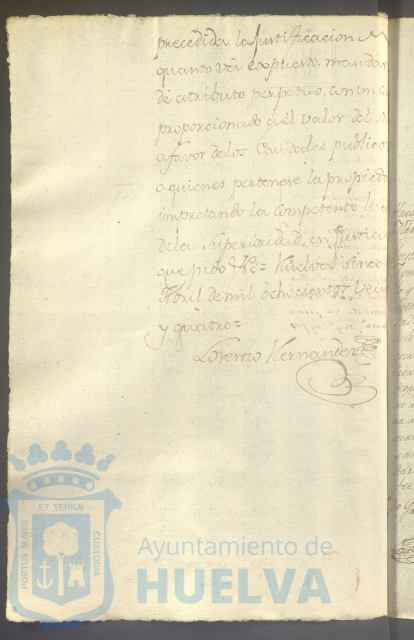 precedida la Justificacion
quanto vá expuesto, mandar
de atributo perpetuo, con un
proporcionado á el valor del
a favor de los Caudales publicos
a quienes pertenece la propiedad
impretando la competente
de la Superioridad, en Justicia
que pido &c.= Huelva y Cinco
Abril de mil ochocientos Vein
y quatro=
Lorenzo Hernandez
PORTUS MARIS
ET TERRÆ
CUSTODIA
Ayuntamiento de
HUELVA